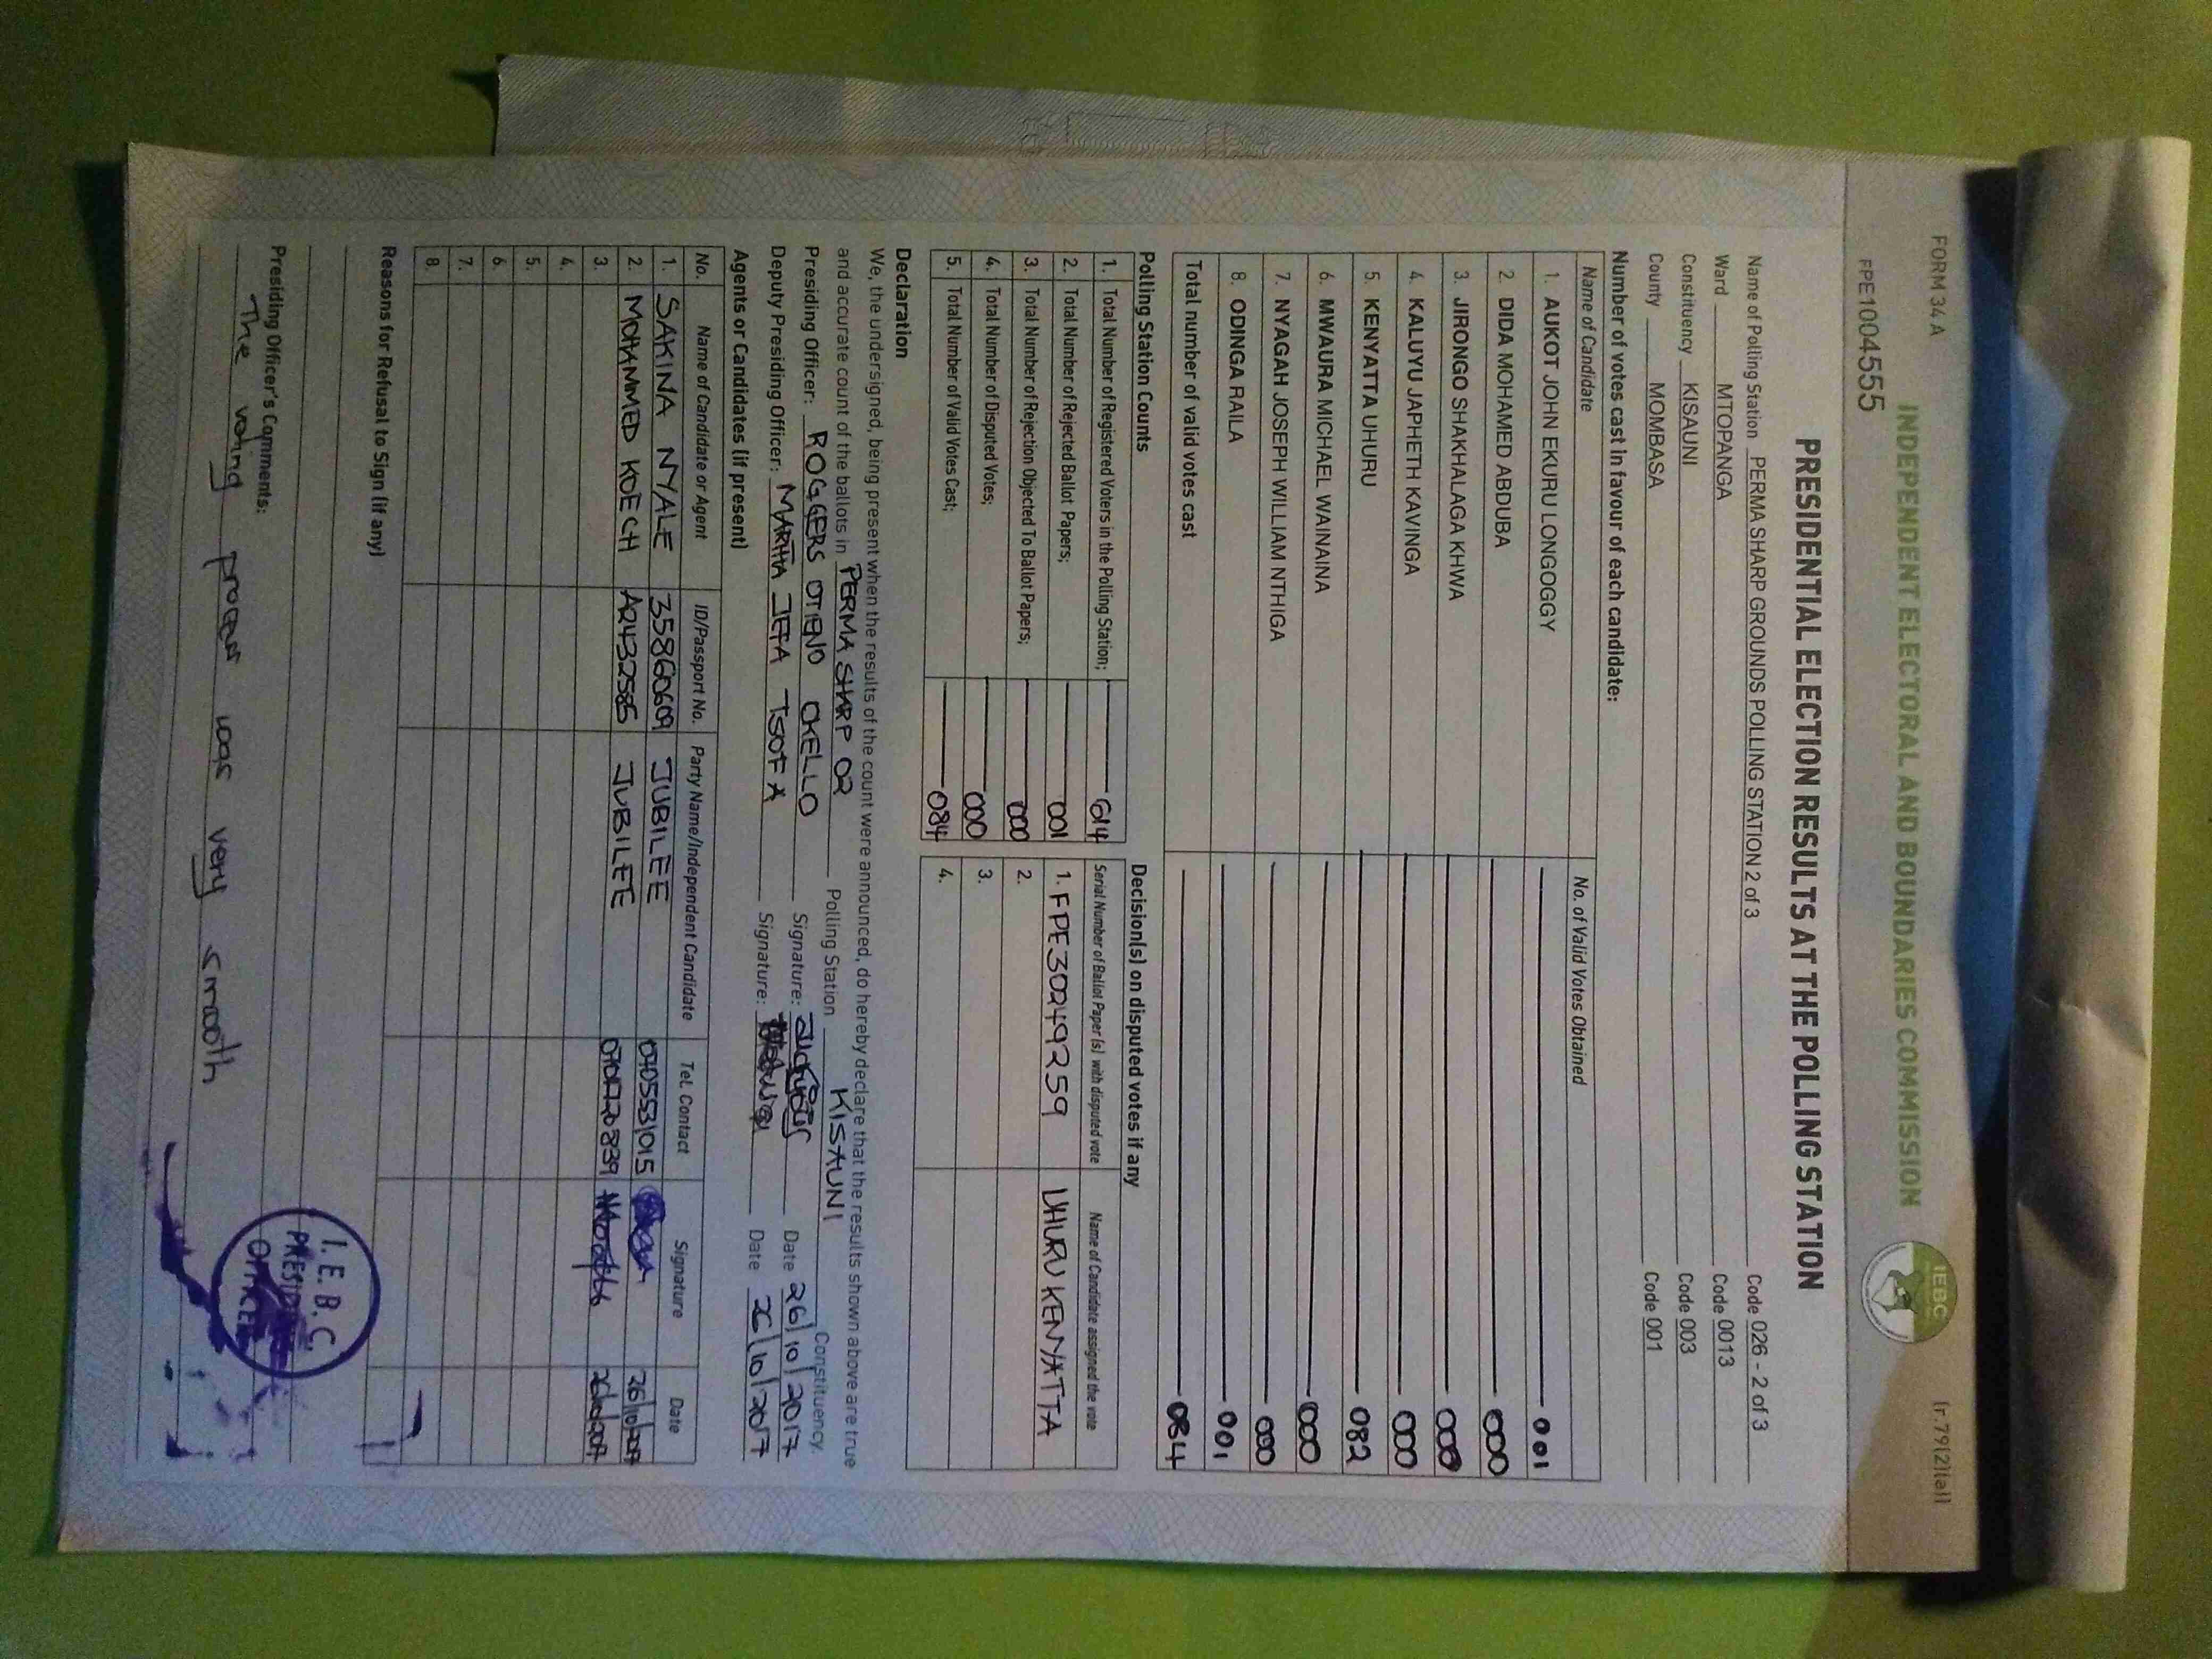 FORM 34 A
(r.79(2)(a))
FPE1004555
INDEPENDENT ELECTORAL AND BOUNDARIES COMMISSION
IEBC
PRESIDENTIAL ELECTION RESULTS AT THE POLLING STATION
Name of Polling Station PERMA SHARP GROUNDS POLLING STATION 2 of 3 Code 026 - 2 of 3
Ward MTOPANGA Code 0013
Constituency KISAUNI Code 003
County MOMBASA Code 001
Number of votes cast in favour of each candidate:
Name of Candidate No. of Valid Votes Obtained
1. AUKOT JOHN EKURU LONGOGGY 001
2. DIDA MOHAMED ABDUBA 000
3. JIRONGO SHAKHALAGA KHWA 000
4. KALUYU JAPHETH KAVINGA 000
5. KENYATTA UHURU 082
6. MWAURA MICHAEL WAINAINA 000
7. NYAGAH JOSEPH WILLIAM NTHIGA 000
8. ODINGA RAILA 001
Total number of valid votes cast 084
Polling Station Counts
1. Total Number of Registered Voters in the Polling Station; 614
2. Total Number of Rejected Ballot Papers; 001
3. Total Number of Rejection Objected To Ballot Papers; 000
4. Total Number of Disputed Votes; 000
5. Total Number of Valid Votes Cast; 084
Decision(s) on disputed votes if any
Serial Number of Ballot Paper (s) with disputed vote Name of Candidate assigned the vote
1. FPE30249259 UHURU KENYATTA
2.
3.
4.
Declaration
We, the undersigned, being present when the results of the count were announced, do hereby declare that the results shown above are true
and accurate count of the ballots in PERMA SHARP 02 Polling Station KISAUNI Constituency.
Presiding Officer: ROGGERS OTIENO OKELLO Signature: Date 26/10/2017
Deputy Presiding Officer: MARTHA JEFA TSOFA Signature: Date 26/10/2017
Agents or Candidates (if present)
No. Name of Candidate or Agent ID/Passport No. Party Name/Independent Candidate Tel. Contact Signature Date
1. SAKINA NYALE 35860609 JUBILEE 0705531015 26/10/2017
2. MOHAMMED KOECH A2432585 JUBILEE 0707720839 26/10/2017
3.
4.
5.
6.
7.
8.
Reasons for Refusal to Sign (if any)
Presiding Officer's Comments:
The voting process was very smooth
I.E.B.C.
PRESIDING
OFFICER